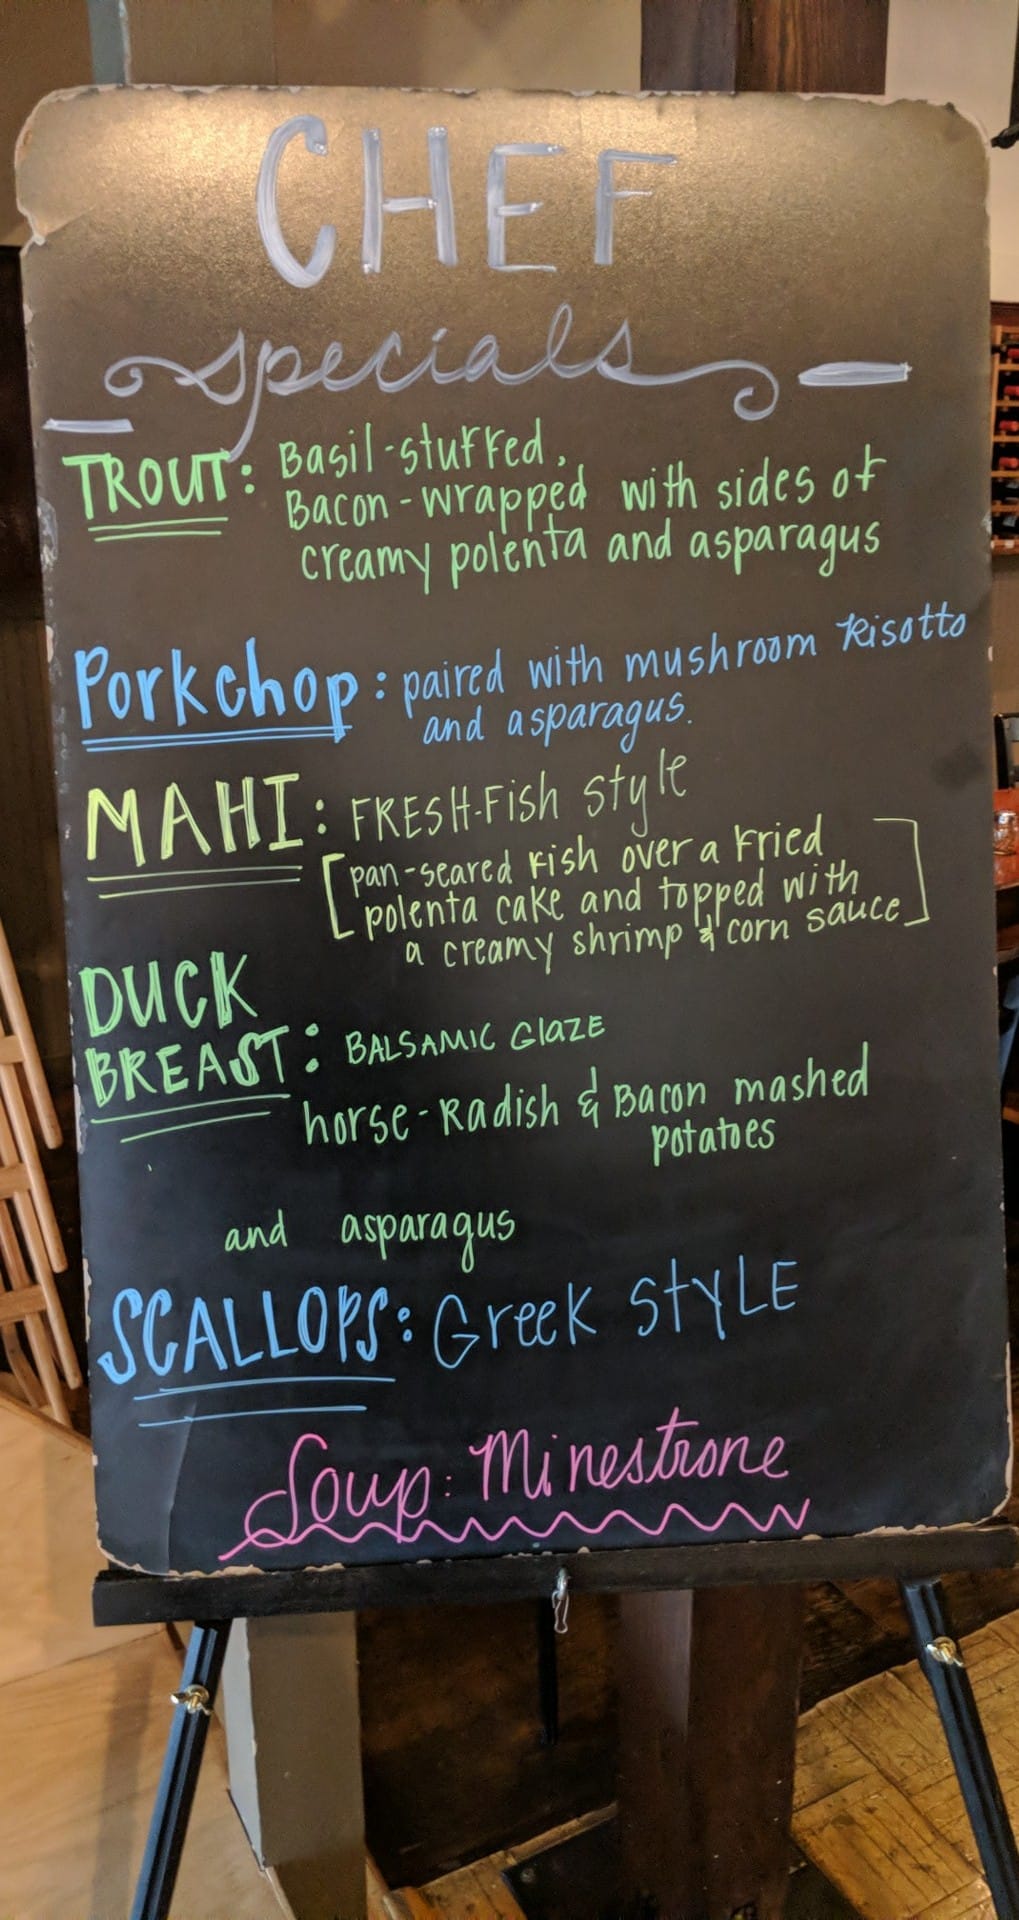 CHEF
specials
TROUT: Basil-stuffed,
Bacon-wrapped with sides of
creamy polenta and asparagus
Porkchop: paired with mushroom Risotto
and asparagus.
MAHI: FRESH-Fish style
[pan-seared fish over a fried
polenta cake and topped with
a creamy shrimp & corn sauce]
DUCK
BREAST: BALSAMIC GlAZE
horse-Radish & Bacon mashed
potatoes
and asparagus
SCALLOPS: Greek STYLE
Soup: Minestrone